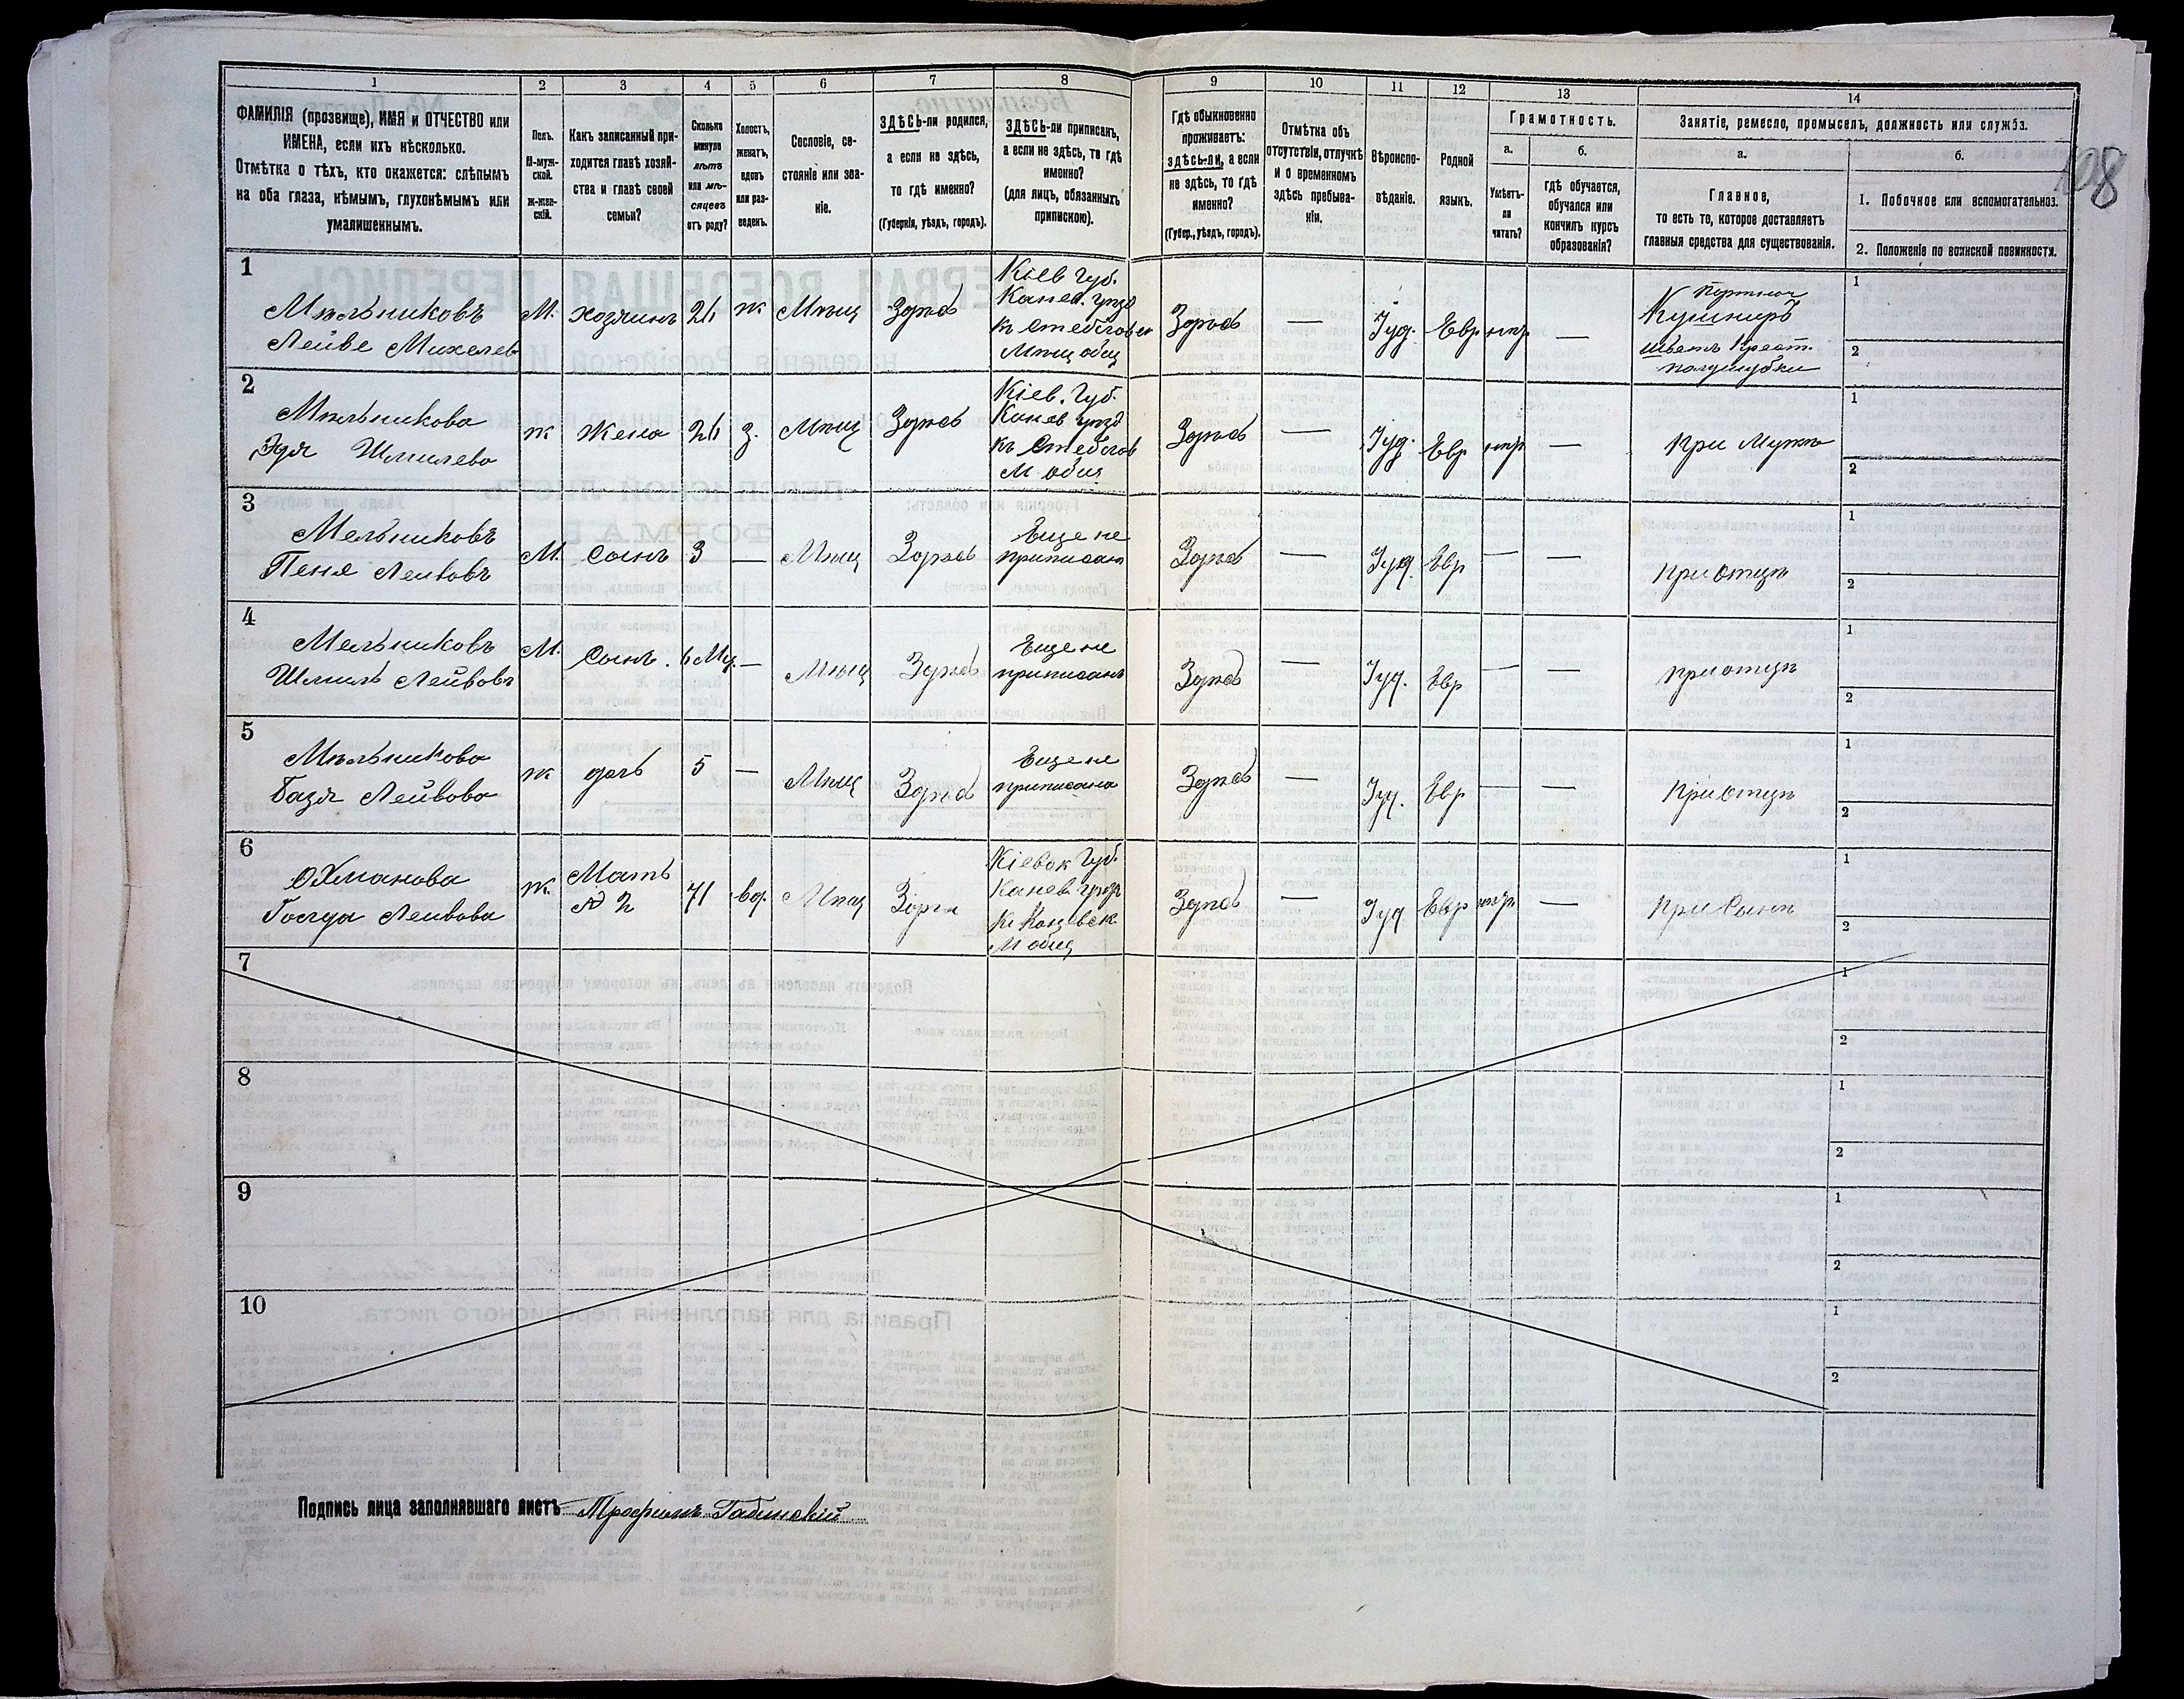 108
1
2
3
4
5
6
7
8
9
10
11
12
13
14
ФАМИЛІЯ (прозвище), ИМЯ и ОТЧЕСТВО или
ИМЕНА, если ихъ нѣсколько.
Отмѣтка о тѣхъ, кто окажется: слѣпымъ
на оба глаза, нѣмымъ, глухонѣмымъ или
умалишеннымъ.
Полъ.
М-муж-
ской.
ж-жен-
скій.
Какъ записанный при-
ходится главѣ хозяй-
ства и главѣ своей
семьи?
Сколько
минуло
лѣтъ
или мѣ-
сяцевъ
отъ роду?
Холостъ,
женатъ,
вдовъ
или раз-
веденъ.
Сословіе, со-
стояніе или зва-
ніе.
ЗДѢСЬ-ли родился,
а если не здѣсь,
то гдѣ именно?
(Губернія, уѣздъ, городъ).
ЗДѢСЬ-ли приписанъ,
а если не здѣсь, то гдѣ
именно?
(для лицъ, обязанныхъ
припискою).
Гдѣ обыкновенно
проживаетъ:
здѣсь-ли, а если
не здѣсь, то гдѣ
именно?
(Губер., уѣздъ, городъ).
Отмѣтка объ
отсутствіи, отлучкѣ
и о временномъ
здѣсь пребыва-
ніи.
Вѣроиспо-
вѣданіе.
Родной
языкъ.
Грамотность.
а.
б.
Умѣетъ-
ли
читать?
гдѣ обучается,
обучался или
кончилъ курсъ
образованія?
Занятіе, ремесло, промыселъ, должность или служба.
а.
б.
Главное,
то есть то, которое доставляетъ
главныя средства для существованія.
1. Побочное или вспомогательное.
2. Положеніе по воинской повинности.
1
Мѣльниковъ
Лейве Михелев
М.
хозяинъ
26
ж
Мѣщ
Здѣсь
Кіев Губ.
Канев. уѣзд
Мѣщ общ
Здѣсь
—
Іуд.
Евр
—
Кушниръ
Шьетъ Крест.
полушубки
1
2
2
Мѣльникова
Эдя Шмилева
ж
Жена
26
з.
Мѣщ
Здѣсь
Кіев. Губ.
Канев уѣзд
М общ
Здѣсь
—
Іуд.
Евр
—
при Мужѣ
1
2
3
Мельниковъ
Пеня Лейвовъ
М.
Сынъ
3
—
Мѣщ
Здѣсь
Еще не
приписан
Здѣсь
—
Іуд.
Евр
—
—
при отцѣ
1
2
4
Мельниковъ
Шмиль Лейвовъ
М.
Сынъ.
6 Мц.
—
Мѣщ
Здѣсь
Еще не
приписанъ
Здѣсь
—
Іуд.
Евр
—
—
при отцѣ
1
2
5
Мѣльникова
Базя Лейвова
ж
дочь
5
—
Мѣщ
Здѣсь
Еще не
приписана
Здѣсь
—
Іуд.
Евр
—
—
При отцѣ
1
2
6
Охманова
Лейвова
ж.
Мать
2
71
вд.
Мѣщ
Кіевск Губ.
Канев. уѣзд
М общ
Здѣсь
—
Іуд
Евр
—
при Сынѣ
1
2
7
1
2
8
1
2
9
1
2
10
1
2
Подпись лица заполнявшаго листъ Трофимъ Габинскій